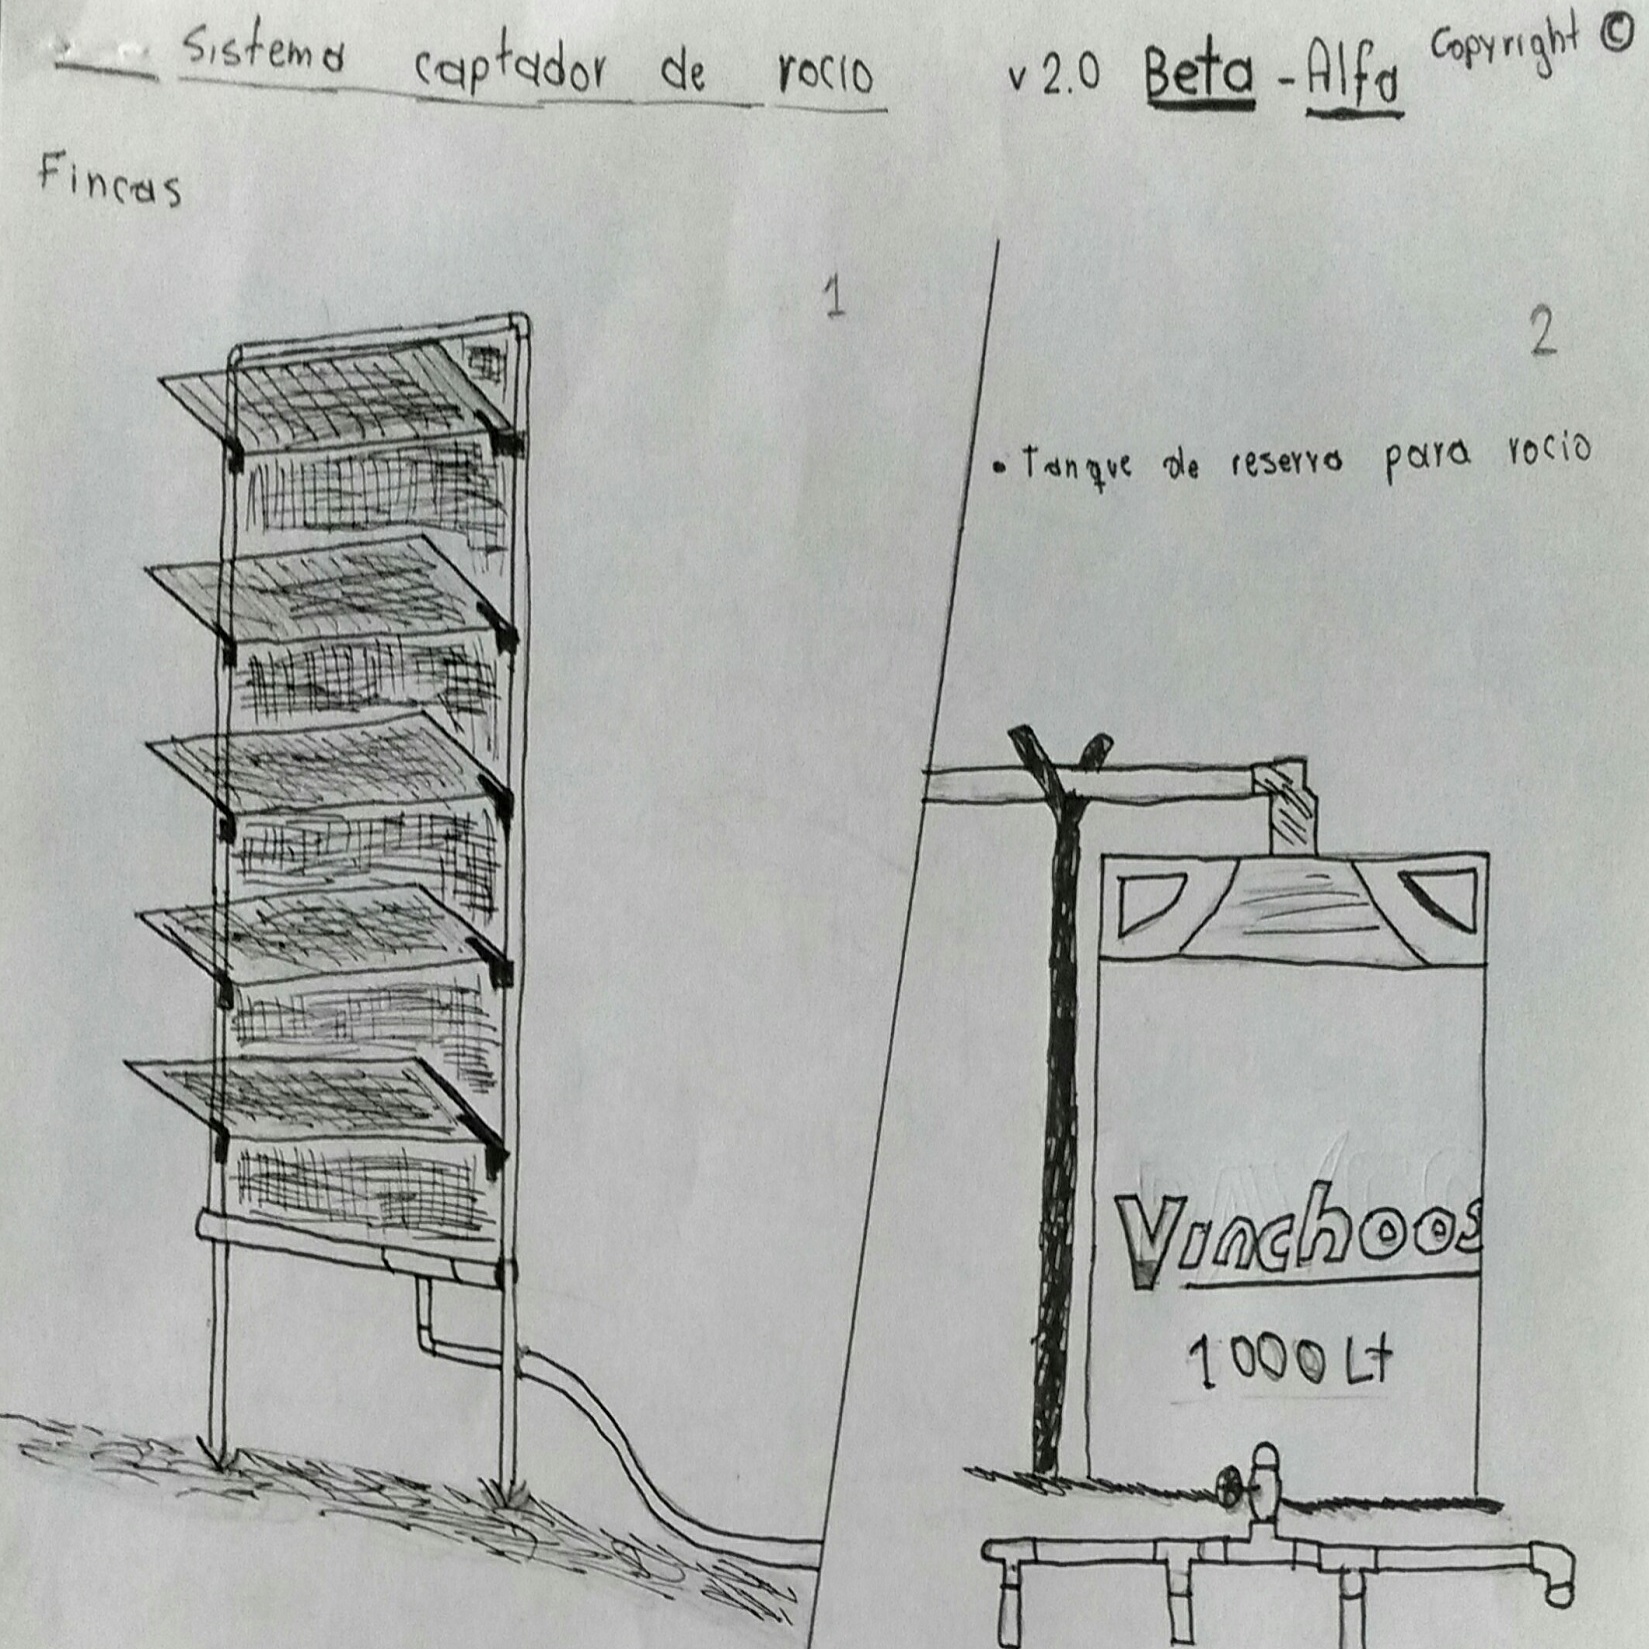 Sistema captador de rocio v 2.0 Beta - Alfa Copyright ©
Fincas
1
2
• Tanque de reserva para rocio
Vinchoos
1000 Lt